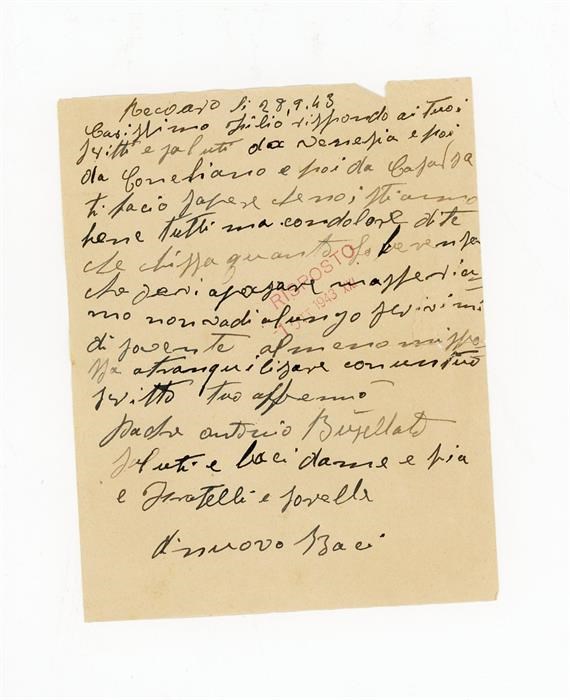 Recoaro li 28,9,43
Carissimo Filio rispondo ai tuoi
scritti e saluti da Venesia e poi
da Coneliano e poi da Casarsa
ti facio sapere che noi stiamo
bene tutti ma con dolore di te
che chissa quante
che devi apasare ma speria
mo non vadi alungo scrivimi
di sovente almeno mi sspo
ssa a tranquilisare con un tuo
scritto tuo affemo
Padre Antonio Busellato
saluti e baci da me e pia
e Fratelli e sorelle
di nuovo Baci
RISPOSTO
1943 XXI